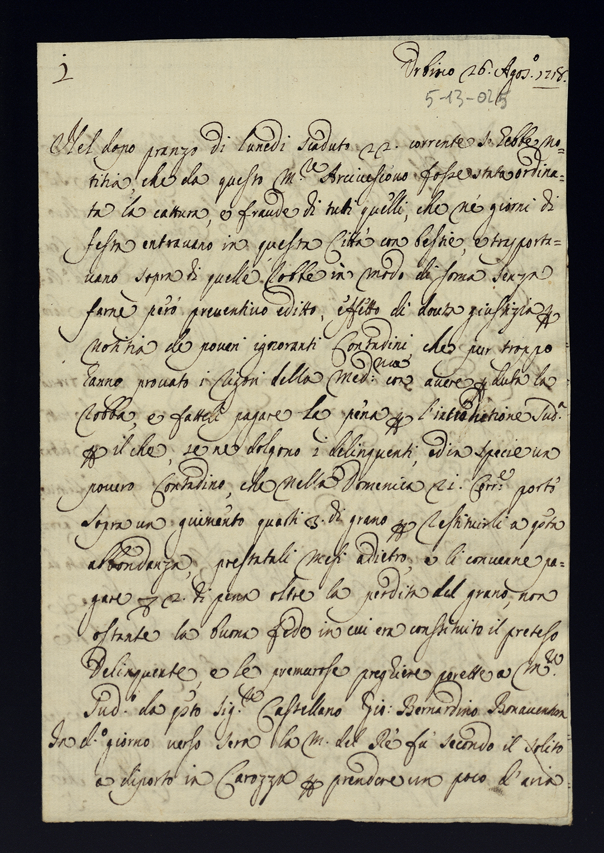 Urbino 26. Agos.º 1718.
5-13-025
Nel dopo pranzo di lunedì scaduto 22. corrente s'ebbe no-
titia, che da questo M.re Arcivescovo fosse stata ordina-
ta la cattura, e fraude di tutti quelli, che ne giorni di
festa entravano in questa Città con bestie, e trapporta-
vano sopra di quelle robbe in modo di soma senza
farne però preventivo editto, effetto di giustizia
notitia de poveri ignoranti Contadini che pur troppo
hanno provato i rigori della Med.ma con avere duta la
robba, e fatteli pagare la pena l' Sud.a
il che, se ne dolgono i delinquenti, ed in specie un
povero Contadino, che nella Domenica 21. Corr.e portò
sopra un giumento quasi 3. di grano restituirli a qsta
abbondanza, prestatali mesi adietro, e li convenne pa-
gare 2. di pena oltre la perdita del grano, non
ostante la buona fede in cui era constituito il preteso
Delinquente, e le premurose preghiere porette a M.re
Sud.º da qsto Sig.re Castellano Gio: Bernardino Bonaventura
In d.º giorno verso sera la M. del Rè fù secondo il solito
a diporto in Carozza prendere un poco d'aria